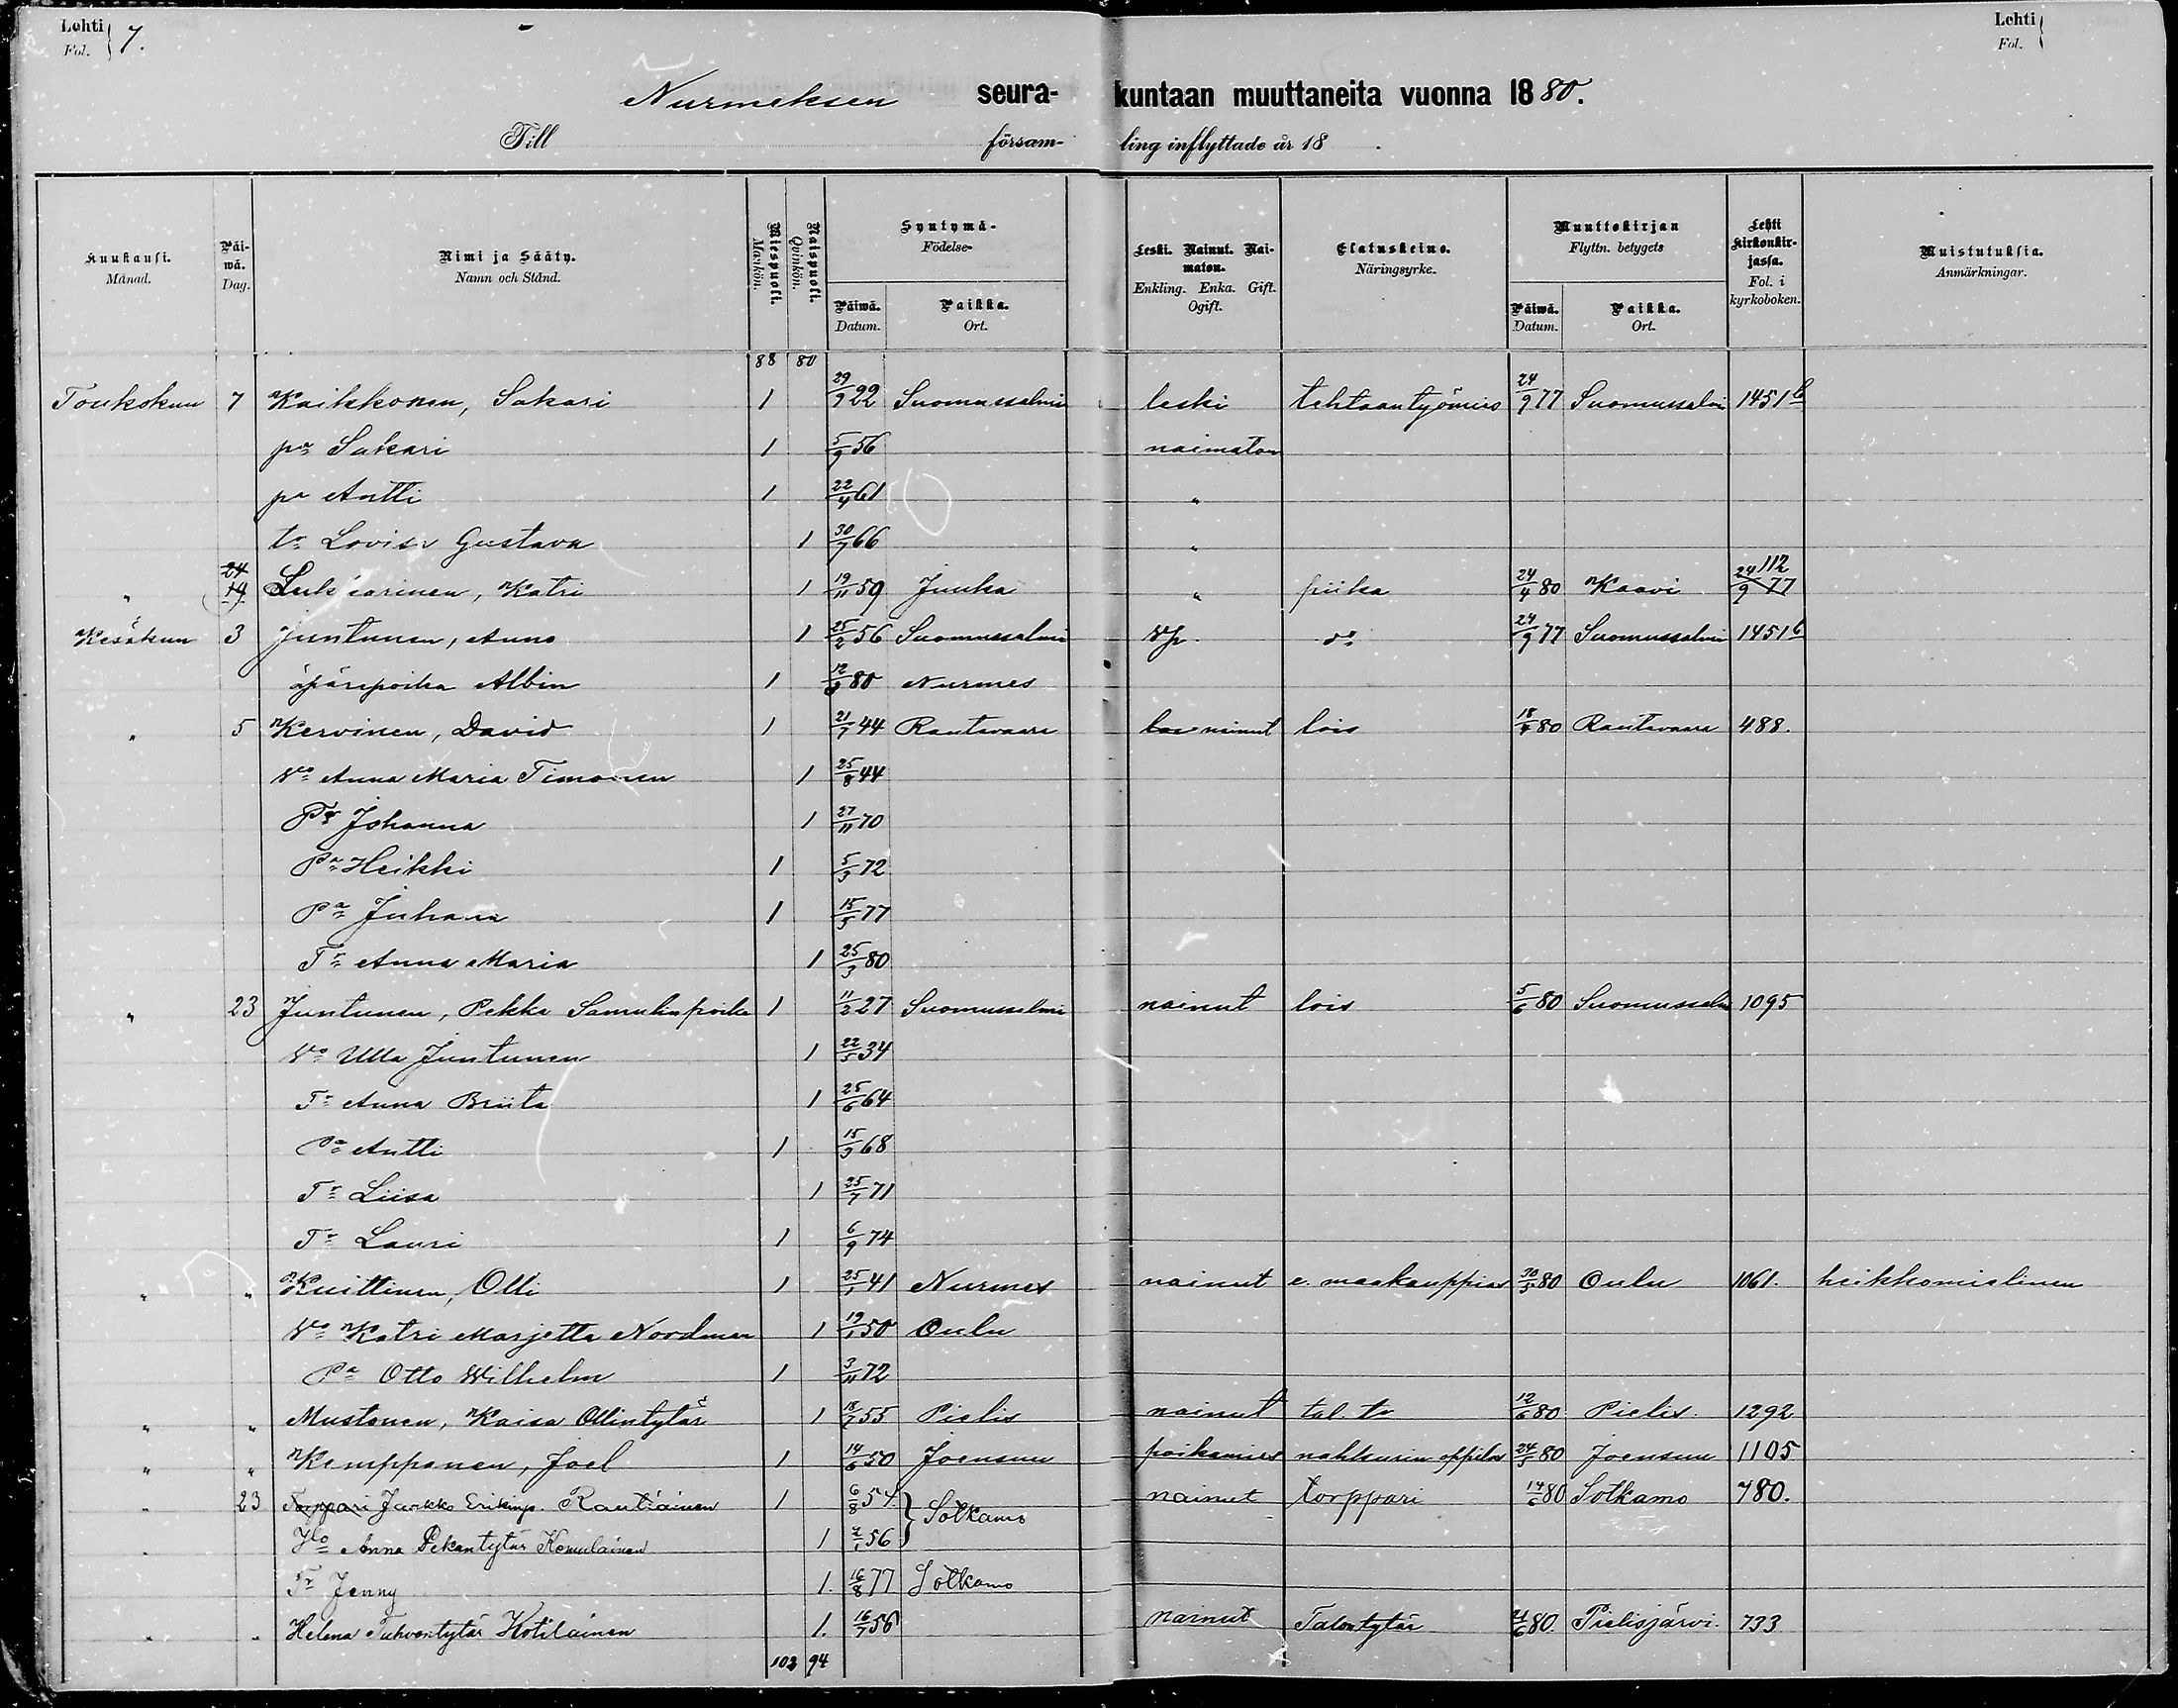 Lehti Fol. 7.
Lehti Fol.
Nurmeksen seura- kuntaan muuttaneita vuonna 1880.
Till församling inflyttade år 18 .
Kuukausi. Månad. Päiwä. Dag. Nimi ja Sääty. Namn och Stånd. Miespuoli. Mankön. Naispuoli. Qvinkön. Syntymä- Födelse- Päiwä. Datum. Paikka. Ort. Leski. Nainut. Naimaton. Enkling. Enka. Gift. Ogift. Elatuskeino. Näringsyrke. Muuttokirjan Flyttn. betygets Päiwä. Datum. Paikka. Ort. Lehti kirkonkirjassa. Fol. i kyrkoboken. Muistutuksia. Anmärkningar.
88 80
Toukokuu 7 Kaikkonen, Sakari 1 29/9 22 Suomussalmi leski tehtaantyömies 24/9 77 Suomussalmi 1451 b
pa Sakari 1 5/9 56 naimaton
pa Antti 1 22/4 61 "
tr Lovisa Gustava 1 30/7 66 "
" 24 19 Katri 1 19/11 59 Juuka " piika 24/4 80 Kaavi 24/9 77 112
Kesäkuu 3 Juntunen, Anna 1 25/2 56 Suomussalmi do 24/9 77 Suomussalmi 1451 b
äpäräpoika Albin 1 80 Nurmes
" 5 Kervinen, David 1 21/7 44 Rautavaara nainut lois 80 Rautavaara 488.
Vo Anna Maria Timonen 1 25/8 44
Johanna 1 27/11 70
Pa Heikki 1 5/3 72
Pa Juhani 1 15/5 77
Tr Anna Maria 1 25/3 80
" 23 Juntunen, Pekka Samulinpoika 1 11/2 27 Suomussalmi nainut lois 5/6 80 Suomussalmi 1095
Vo Ulla Juntunen 1 22/5 34
Tr Anna Briita 1 25/6 64
Pa Antti 1 15/3 68
Tr Liisa 1 25/7 71
Tr Lauri 1 6/9 74
" " Kuittinen, Olli 1 25/1 41 Nurmes nainut e. maakauppias 30/5 80 Oulu 1061. heikkomielinen
Vo Katri Marjetta Nordman 1 19/1 50 Oulu
Pa Otto Wilhelm 1 3/11 72
" " Mustonen, Kaisa Ollintytär 1 18/7 55 Pielis nainut tal. tr 12/6 80 Pielis 1292
" " Kemppanen, Joel 1 14/6 50 Joensuu poikamies nahkurin oppilas 24/5 80 Joensuu 1105
" 23 Torppari Jaakko Erikinp. Rautiainen 1 6/8 54 } Sotkamo nainut torppari 14/6 80 Sotkamo 780.
" Anna Pekantytär Komulainen 1 56
Tr Jenny 1. 16/8 77 Sotkamo
" " Helena Tahventytär Kotilainen 1. 16/7 56 nainut Talontytär 80. Pielisjärvi. 733
103 94